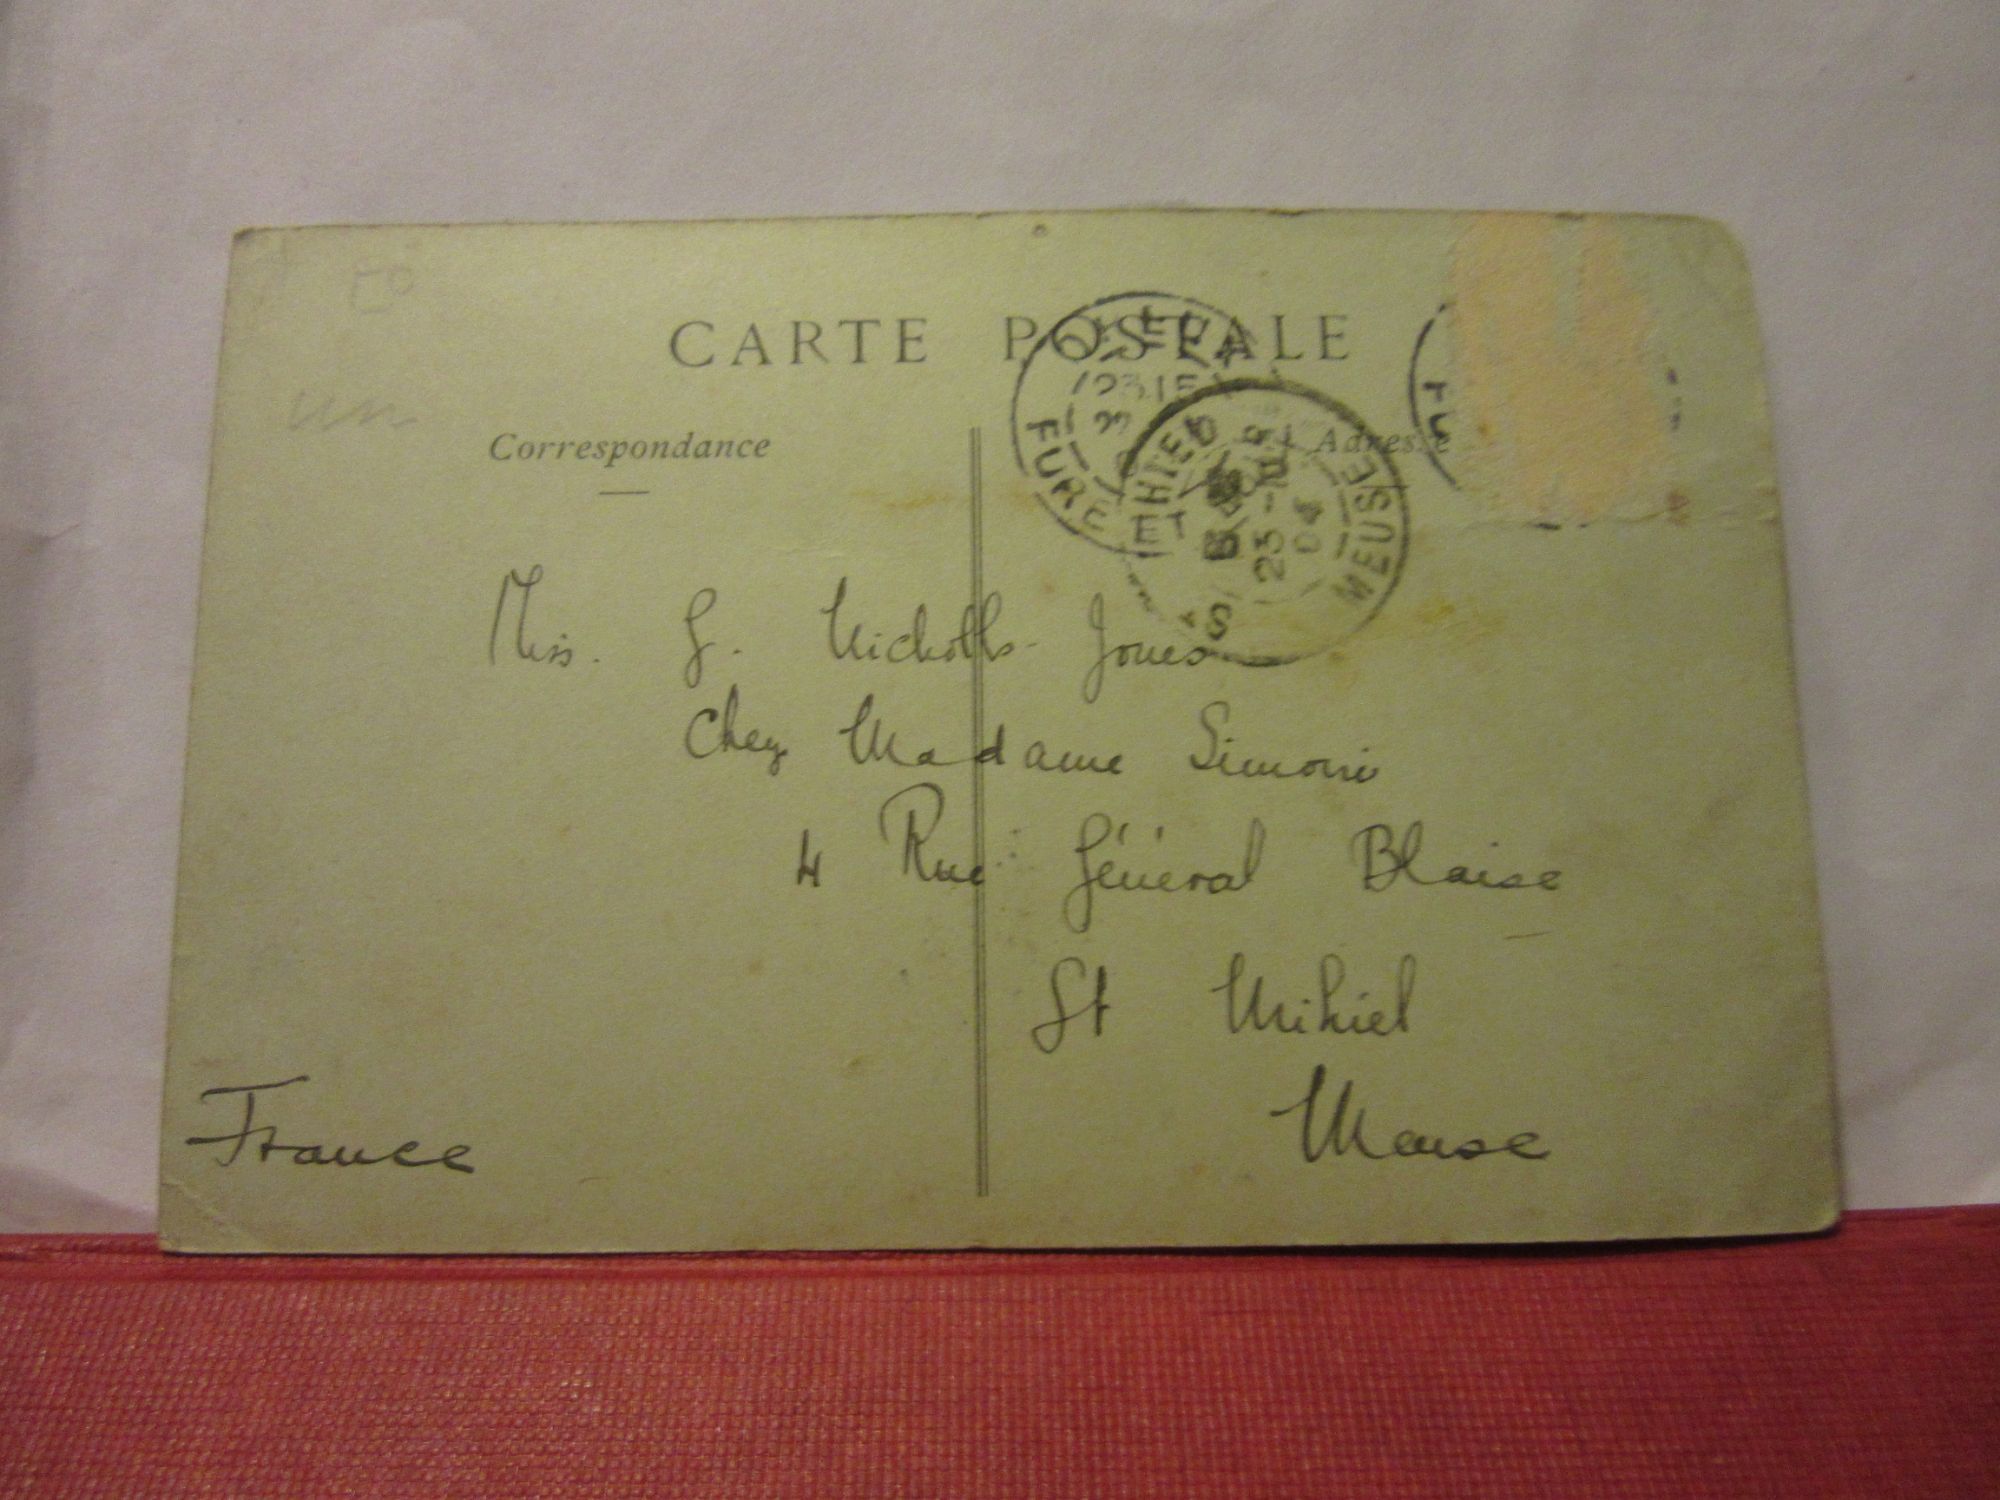 CARTE POSTALE
Correspondance
Adresse
FURE
MIHIEL
ET
23-
04
MEUSE
Miss. G. Nicholls-Jones
Chez Madame Simoni
4 Rue Général Blaise
St Mihiel
Meuse
France